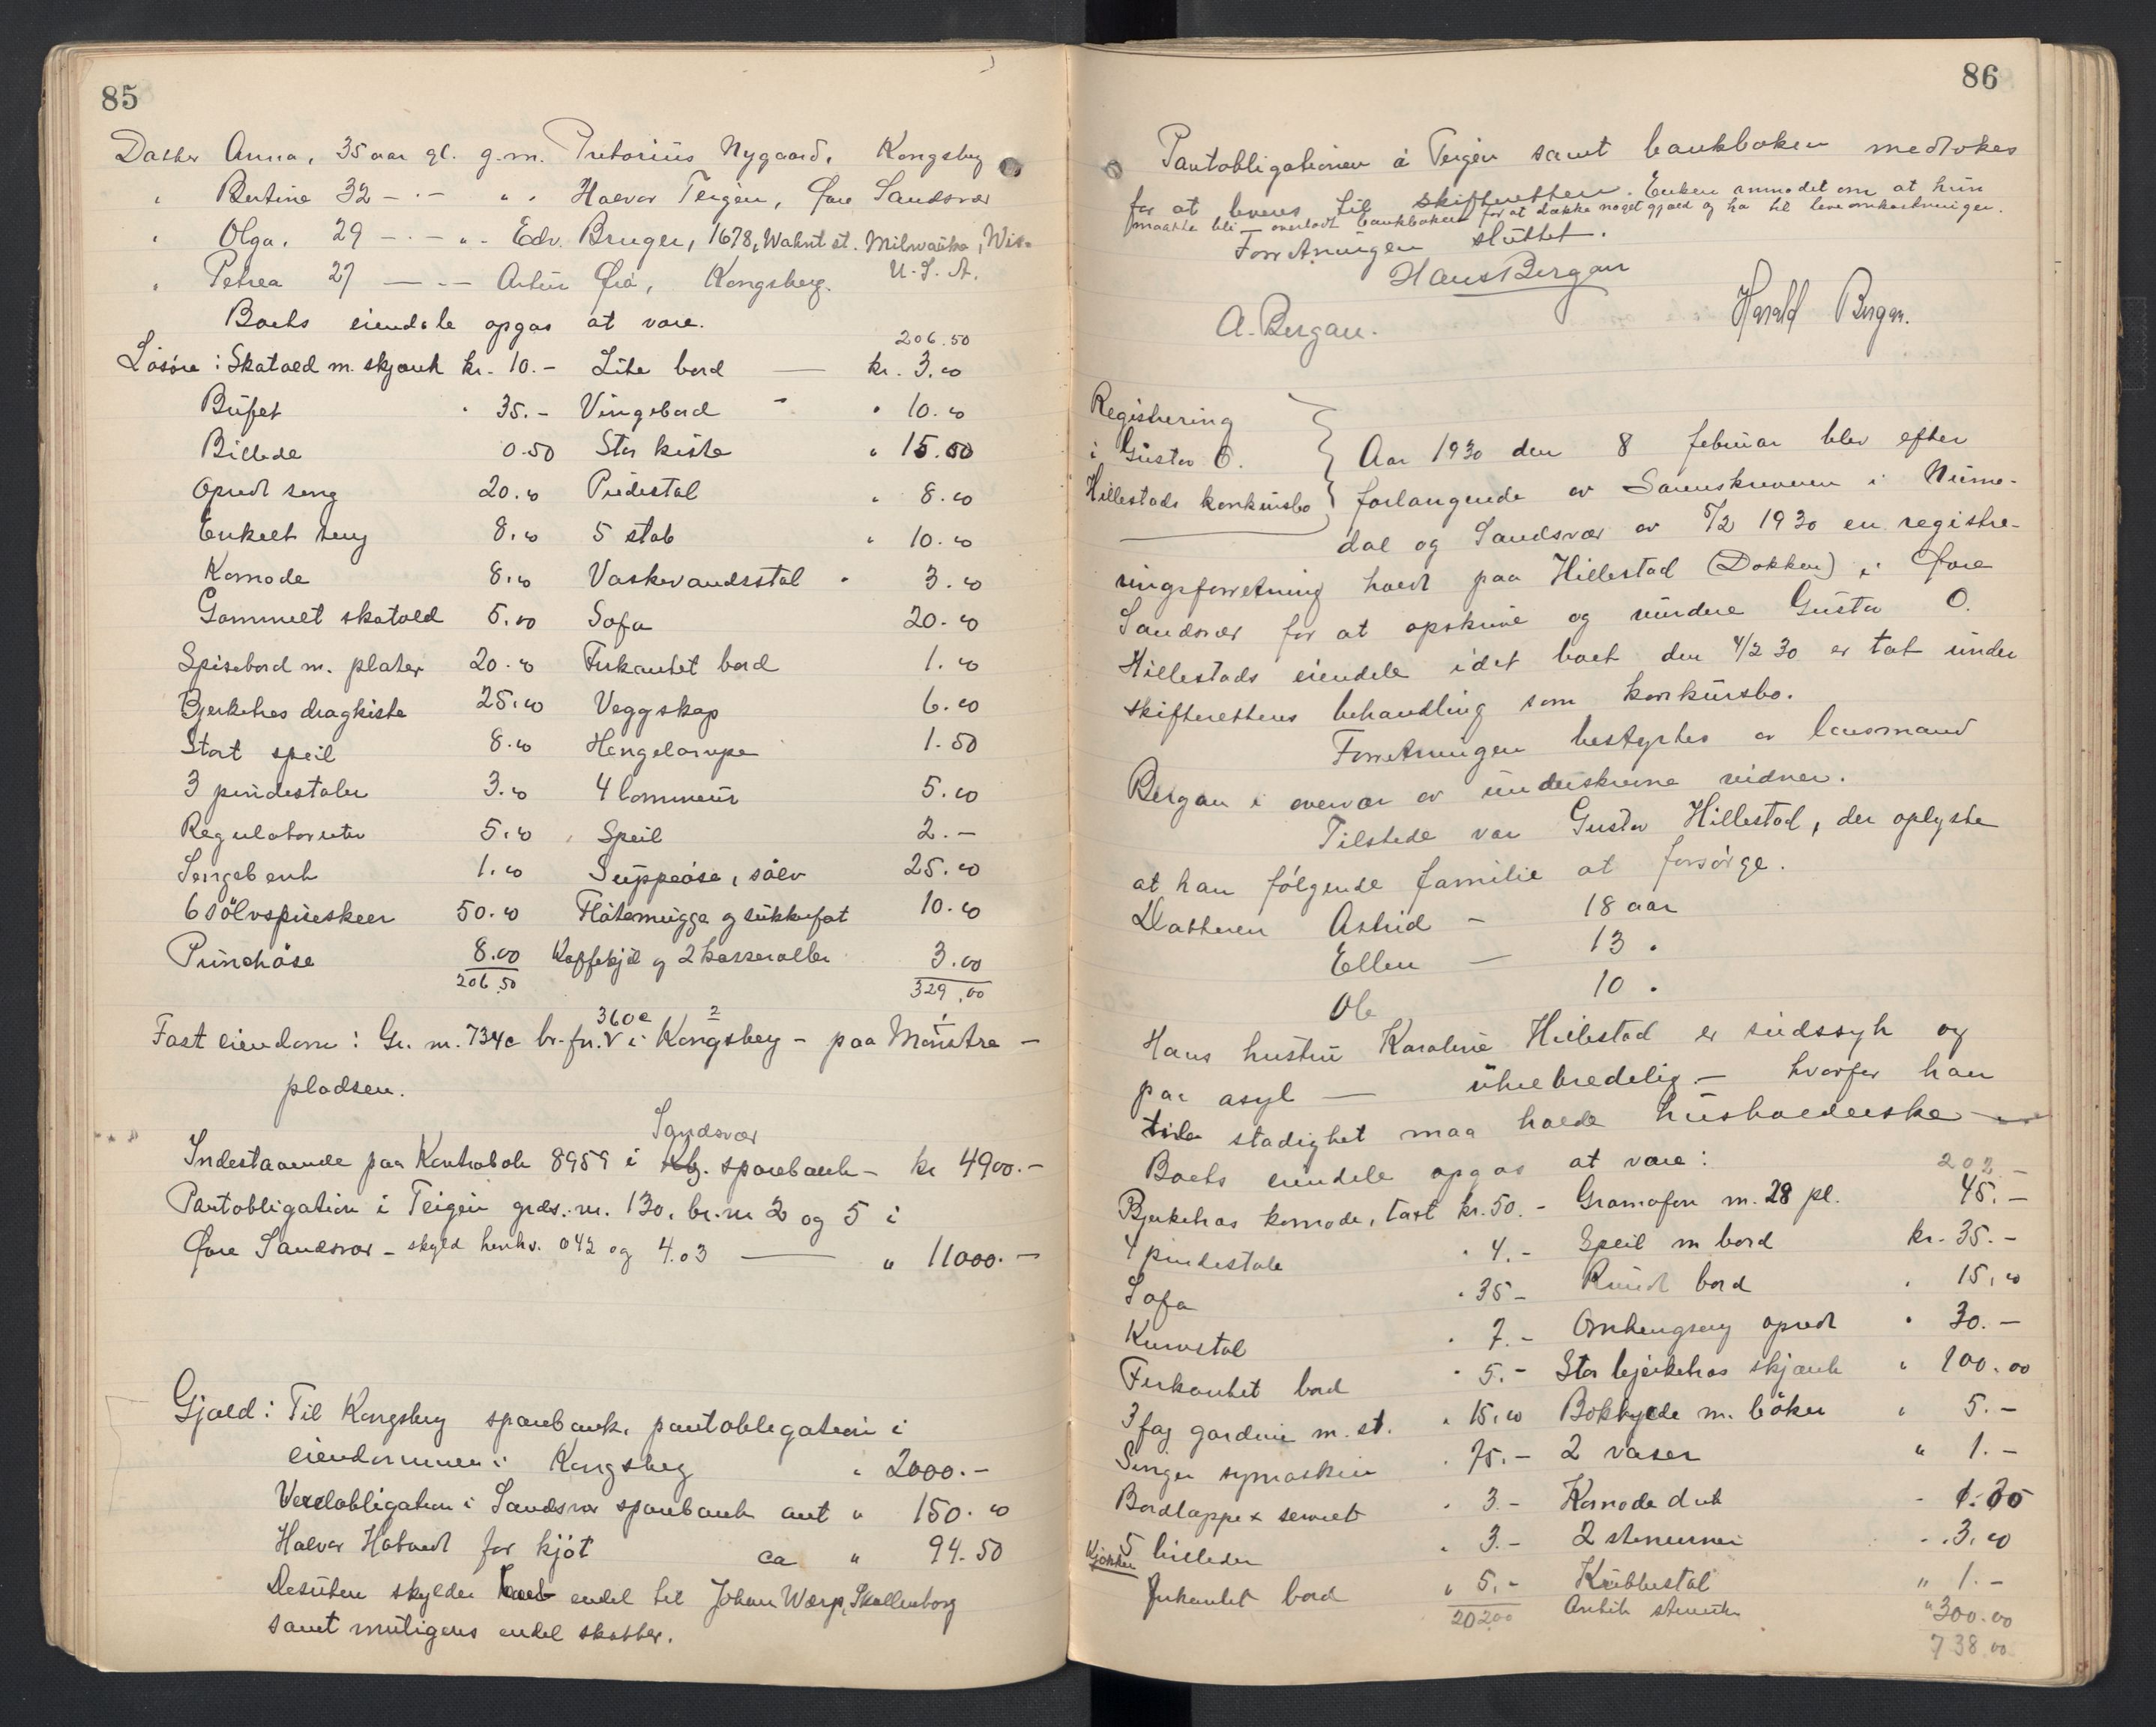 85
Datter Anna, 35 aar gl. g.m. Pretorius Nygaard, Kongsberg
" Bertine 32 - " - " " Halvor Teigen, Øvre Sandsvær
" Olga, 29 - " - " - Edv. Bruger, 1678, Walnut st. Milwauke, Wis.
" Petrea 27 - - - Artur Øia, Kongsberg. U.S.A.
Boets eiendele opgas at være.
206.50
Løsøre: Skatold m. skjænk kr. 10.- Lite bord — kr. 3.00
Büfet " 35.- Vingebord " " 10.00
Billede 0.50 Stor kiste " 15.00
Opredt seng 20.00 Piedestal " 8.00
Enkelt seng 8.00 5 stab " 10.00
Komode 8.00 Vaskevandsstol " 3.00
Gammelt skatold 5.00 Sofa 20.00
Spisebord m. plater 20.00 Firkantet bord 1.00
Bjerketres dragkiste 25.00 Veggskap 6.00
Stort speil 8.00 Hengelampe 1.50
3 pindestoler 3.00 4 lommeur 5.00
Regulatorur 5.00 Speil 2.-
Sengebenk 1.00 Suppeøse, sølv 25.00
6 sølvspiseskeer 50.00 Fløtemugge og sukkerfat 10.00
Punchøse 8.00 Kaffekjel og 2 kasseroller 3.00
206.50 329.00
360e 2
Fast eiendom: Gr. nr. 734c br. fn. V i Kongsberg - paa Mønstre -
pladsen.
Sandsvær
Indestaaende paa Kontrabok 8959 i Kbg. sparebank - kr 4900.-
Pantobligation i Teigen grds. nr. 130, br. nr 2 og 5 i
Øvre Sandsvær - skyld henhv. 042 og 4.03 — " 11000.-
Gjæld: Til Kongsberg sparebank, pantobligation i
eiendommen i Kongsberg " 2000.-
Vexelobligation i Sandsvær sparebank ant " 150.00
Halvor for kjøt ca " 94.50
Desuten skylder boet endel til Johan Wærp, Skollenborg
samt muligens endel skatter.
86
Pantobligationen i Teigen samt bankboken medtokes
for at leveres til skifteretten. Enken anmodet om at hun
maatte bli overlatt bankboken for at dække noget gjæld og ha til leveomkostninger.
Forretningen sluttet.
Hans Bergan
A. Bergan. Harald Bergan.
Registrering
i Gustav O.
Hillestads konkursbo
Aar 1930 den 8 februar blev efter
forlangende av Sorenskriveren i Nume-
dal og Sandsvær av 5/2 1930 en registre-
ringsforretning holdt paa Hillestad (Dokken) i Øvre
Sandsvær for at opskrive og vurdere Gustav O.
Hillestads eiendele idet boet den 4/2 30 er tat under
skifterettens behandling som konkursbo.
Forretningen bestyrtes av lensmand
Bergan i overvær av underskrevne vidner.
Tilstede var Gustav Hillestad, der oplyste
at han følgende familie at forsørge.
Datteren Astrid - 18 aar
Ellen — 13 "
Ole 10 "
Hans hustru Karoline Hillestad er sindssyk og
paa asyl — uhelbredelig - hvorfor han
til stadighet maa holde husholderske —
Boets eiendele opgas at være: 202.-
Bjerketræs komode, takst kr. 50.- Gramofon m. 28 pl. 45.-
4 pindestole " 4.- Speil m bord kr. 35.-
Sofa " 35- Rundt bord " 15.00
Kurvstol " 7.- Omhengseng opredt " 30.-
Firkantet bord " 5.- Stor bjerketræs skjænk " 100.00
3 fag gardiner m. st. " 15.00 Bokhylde m. bøker " 5.-
Singer symaskin " 75.- 2 vaser " 1.-
Bordlappe & serviet " 3.- Komode duk - 1.00
5 billeder " 3.- 2 - 3.00
Kjøkken
Firkantet bord " 5.- Krakkestol " 1.-
20200 Antik " 300.00
738.00